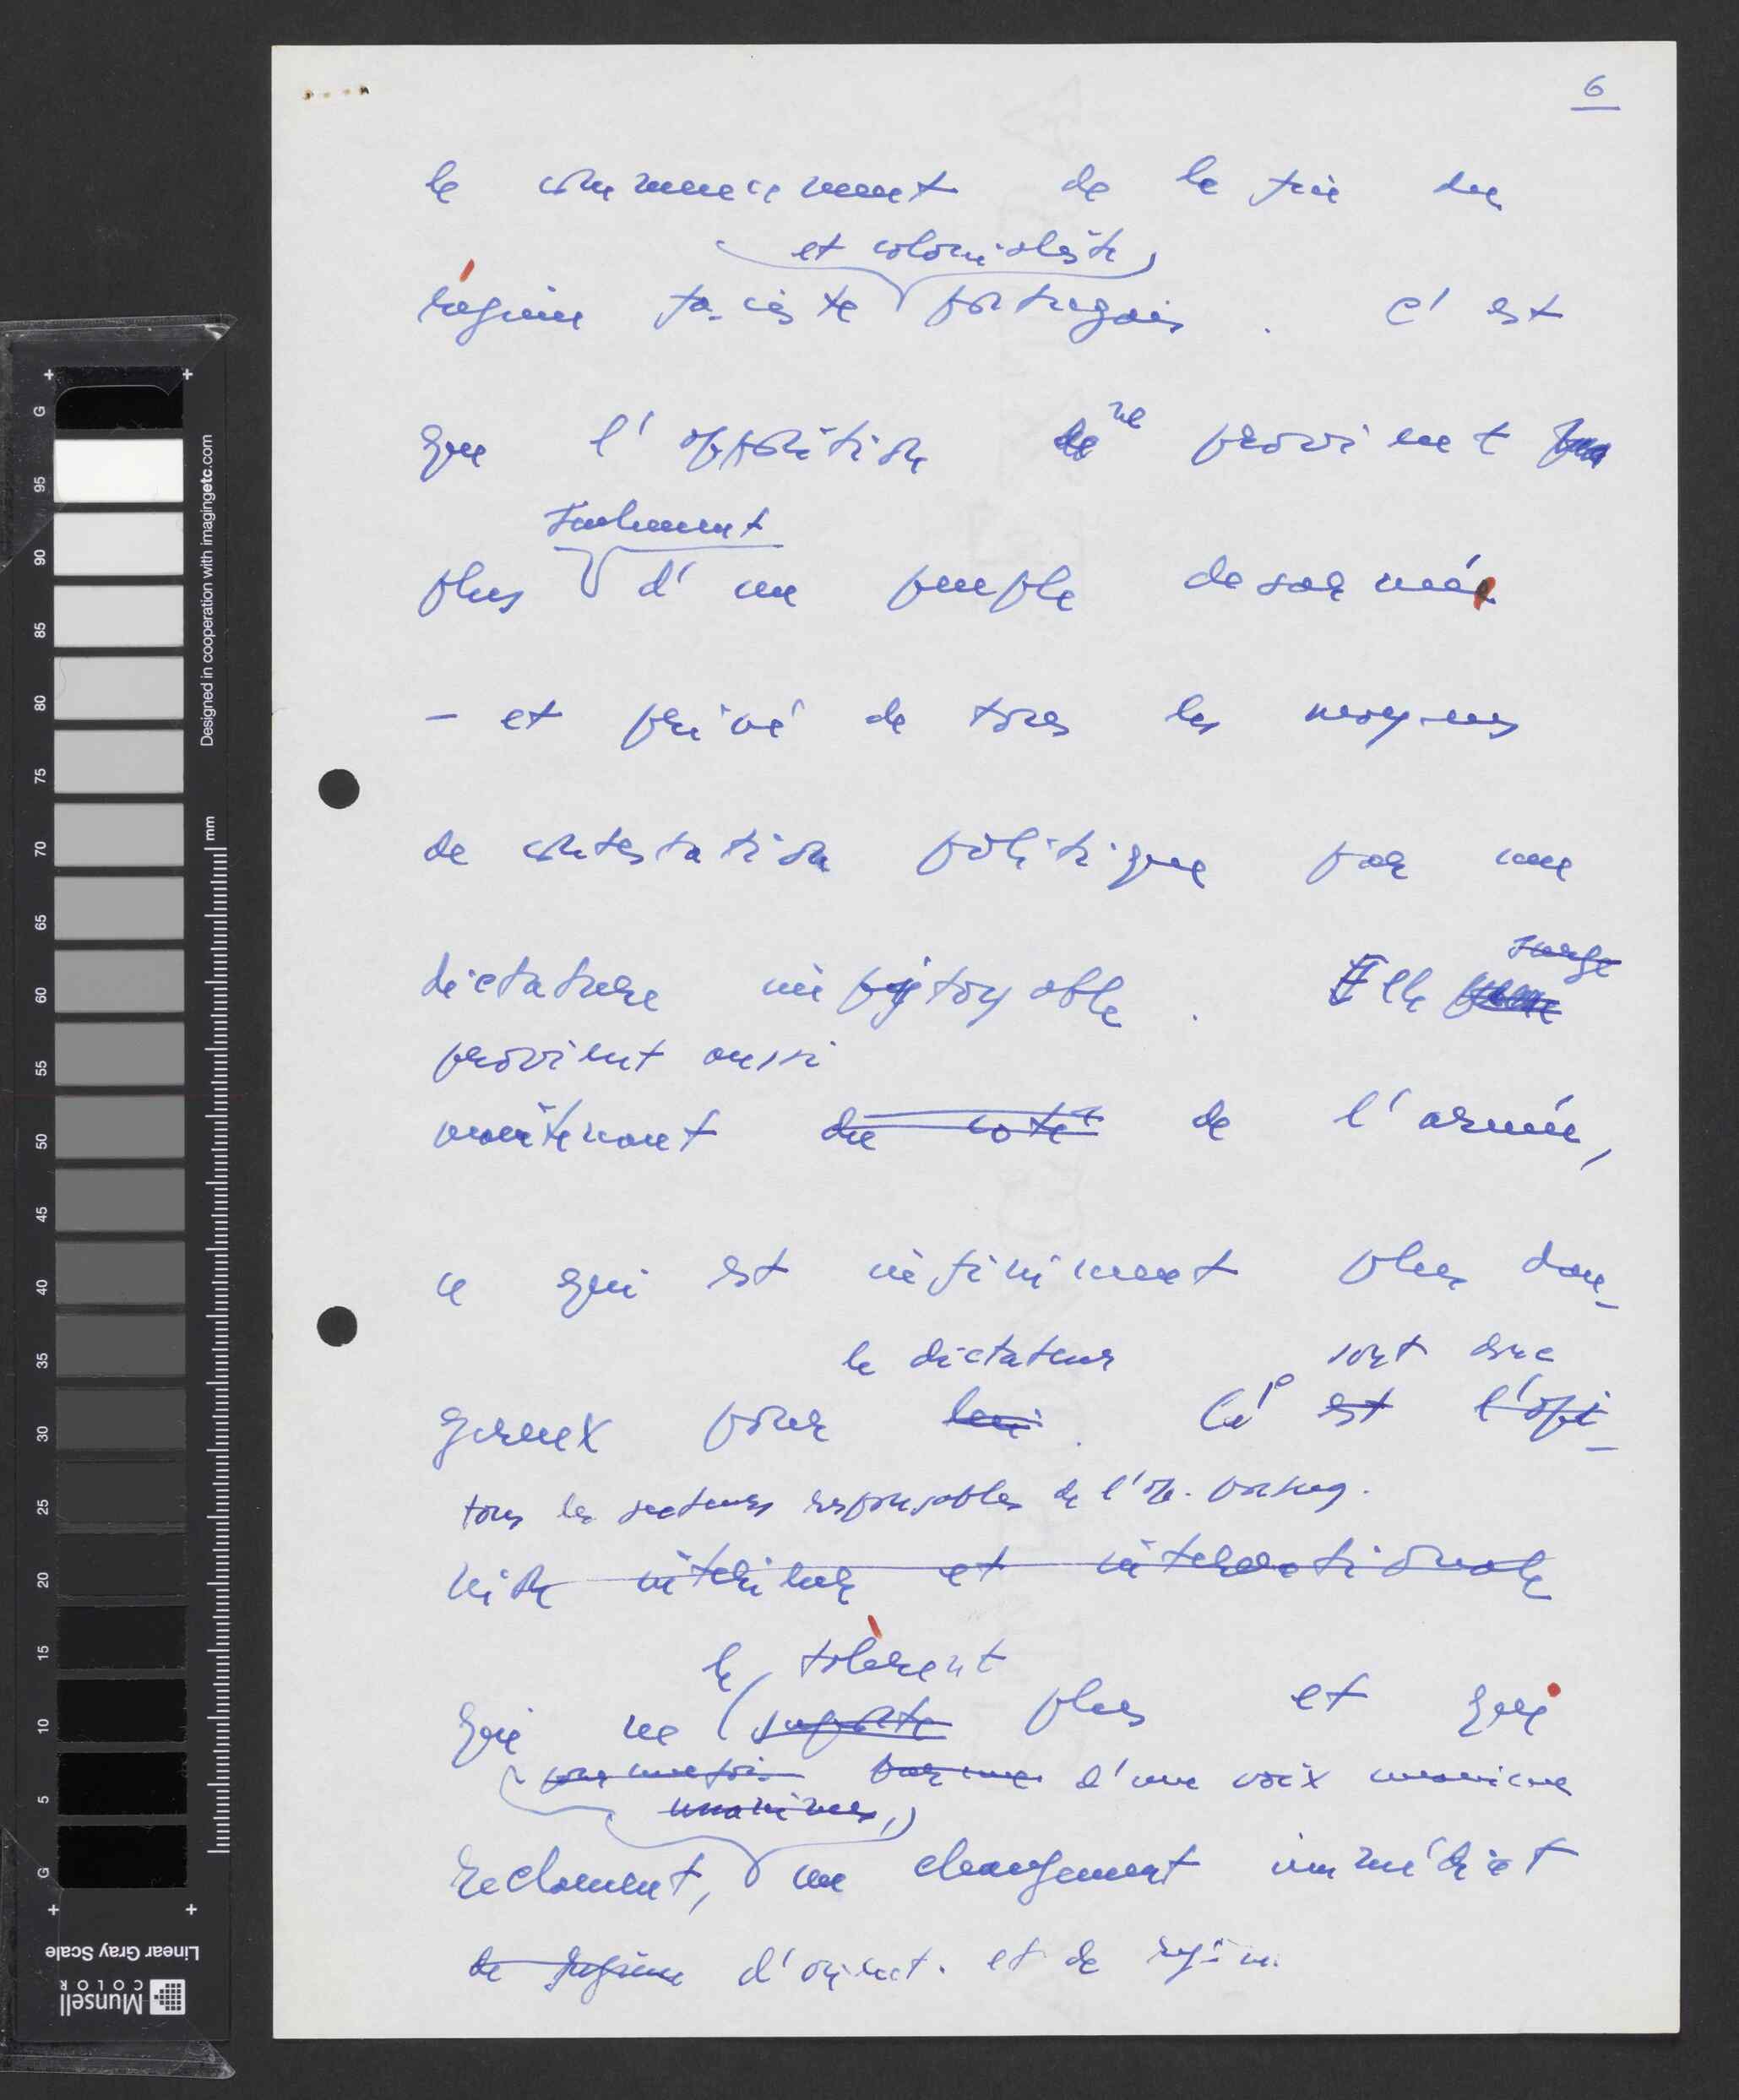 6
le commencement de la fin du
et colonialiste
régime fasciste portugais. C'est
que l'opposition ne provient
seulement
plus d'un peuple desarmé
- et privé de tous les moyens
de contestation politique par une
dictature impitoyable. Elle
surge
provient aussi
maintenant du coté de l'armée,
ce qui est infiniment plus dan-
le dictateur sont donc
gereux pour lui. Ce est l'opi-
tous les secteurs responsables de l'op. portug.
nion intérieure et internationale
le tolèrent
qui ne suporte plus et qui
pour une fois par une d'une voix unanime
unanimes,
reclament, un changement immédiat
de regime d'orient. et de régime.
Designed in cooperation with imagingetc.com
mm
G
95
90
85
80
75
70
65
60
55
50
45
40
35
30
25
20
15
10
5
G
Linear Gray Scale
Munsell
COLOR